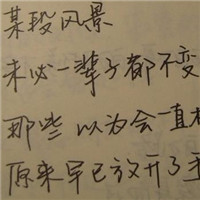 某段风景
未必一辈子都不变
那些以为会一直
原来早已放开了